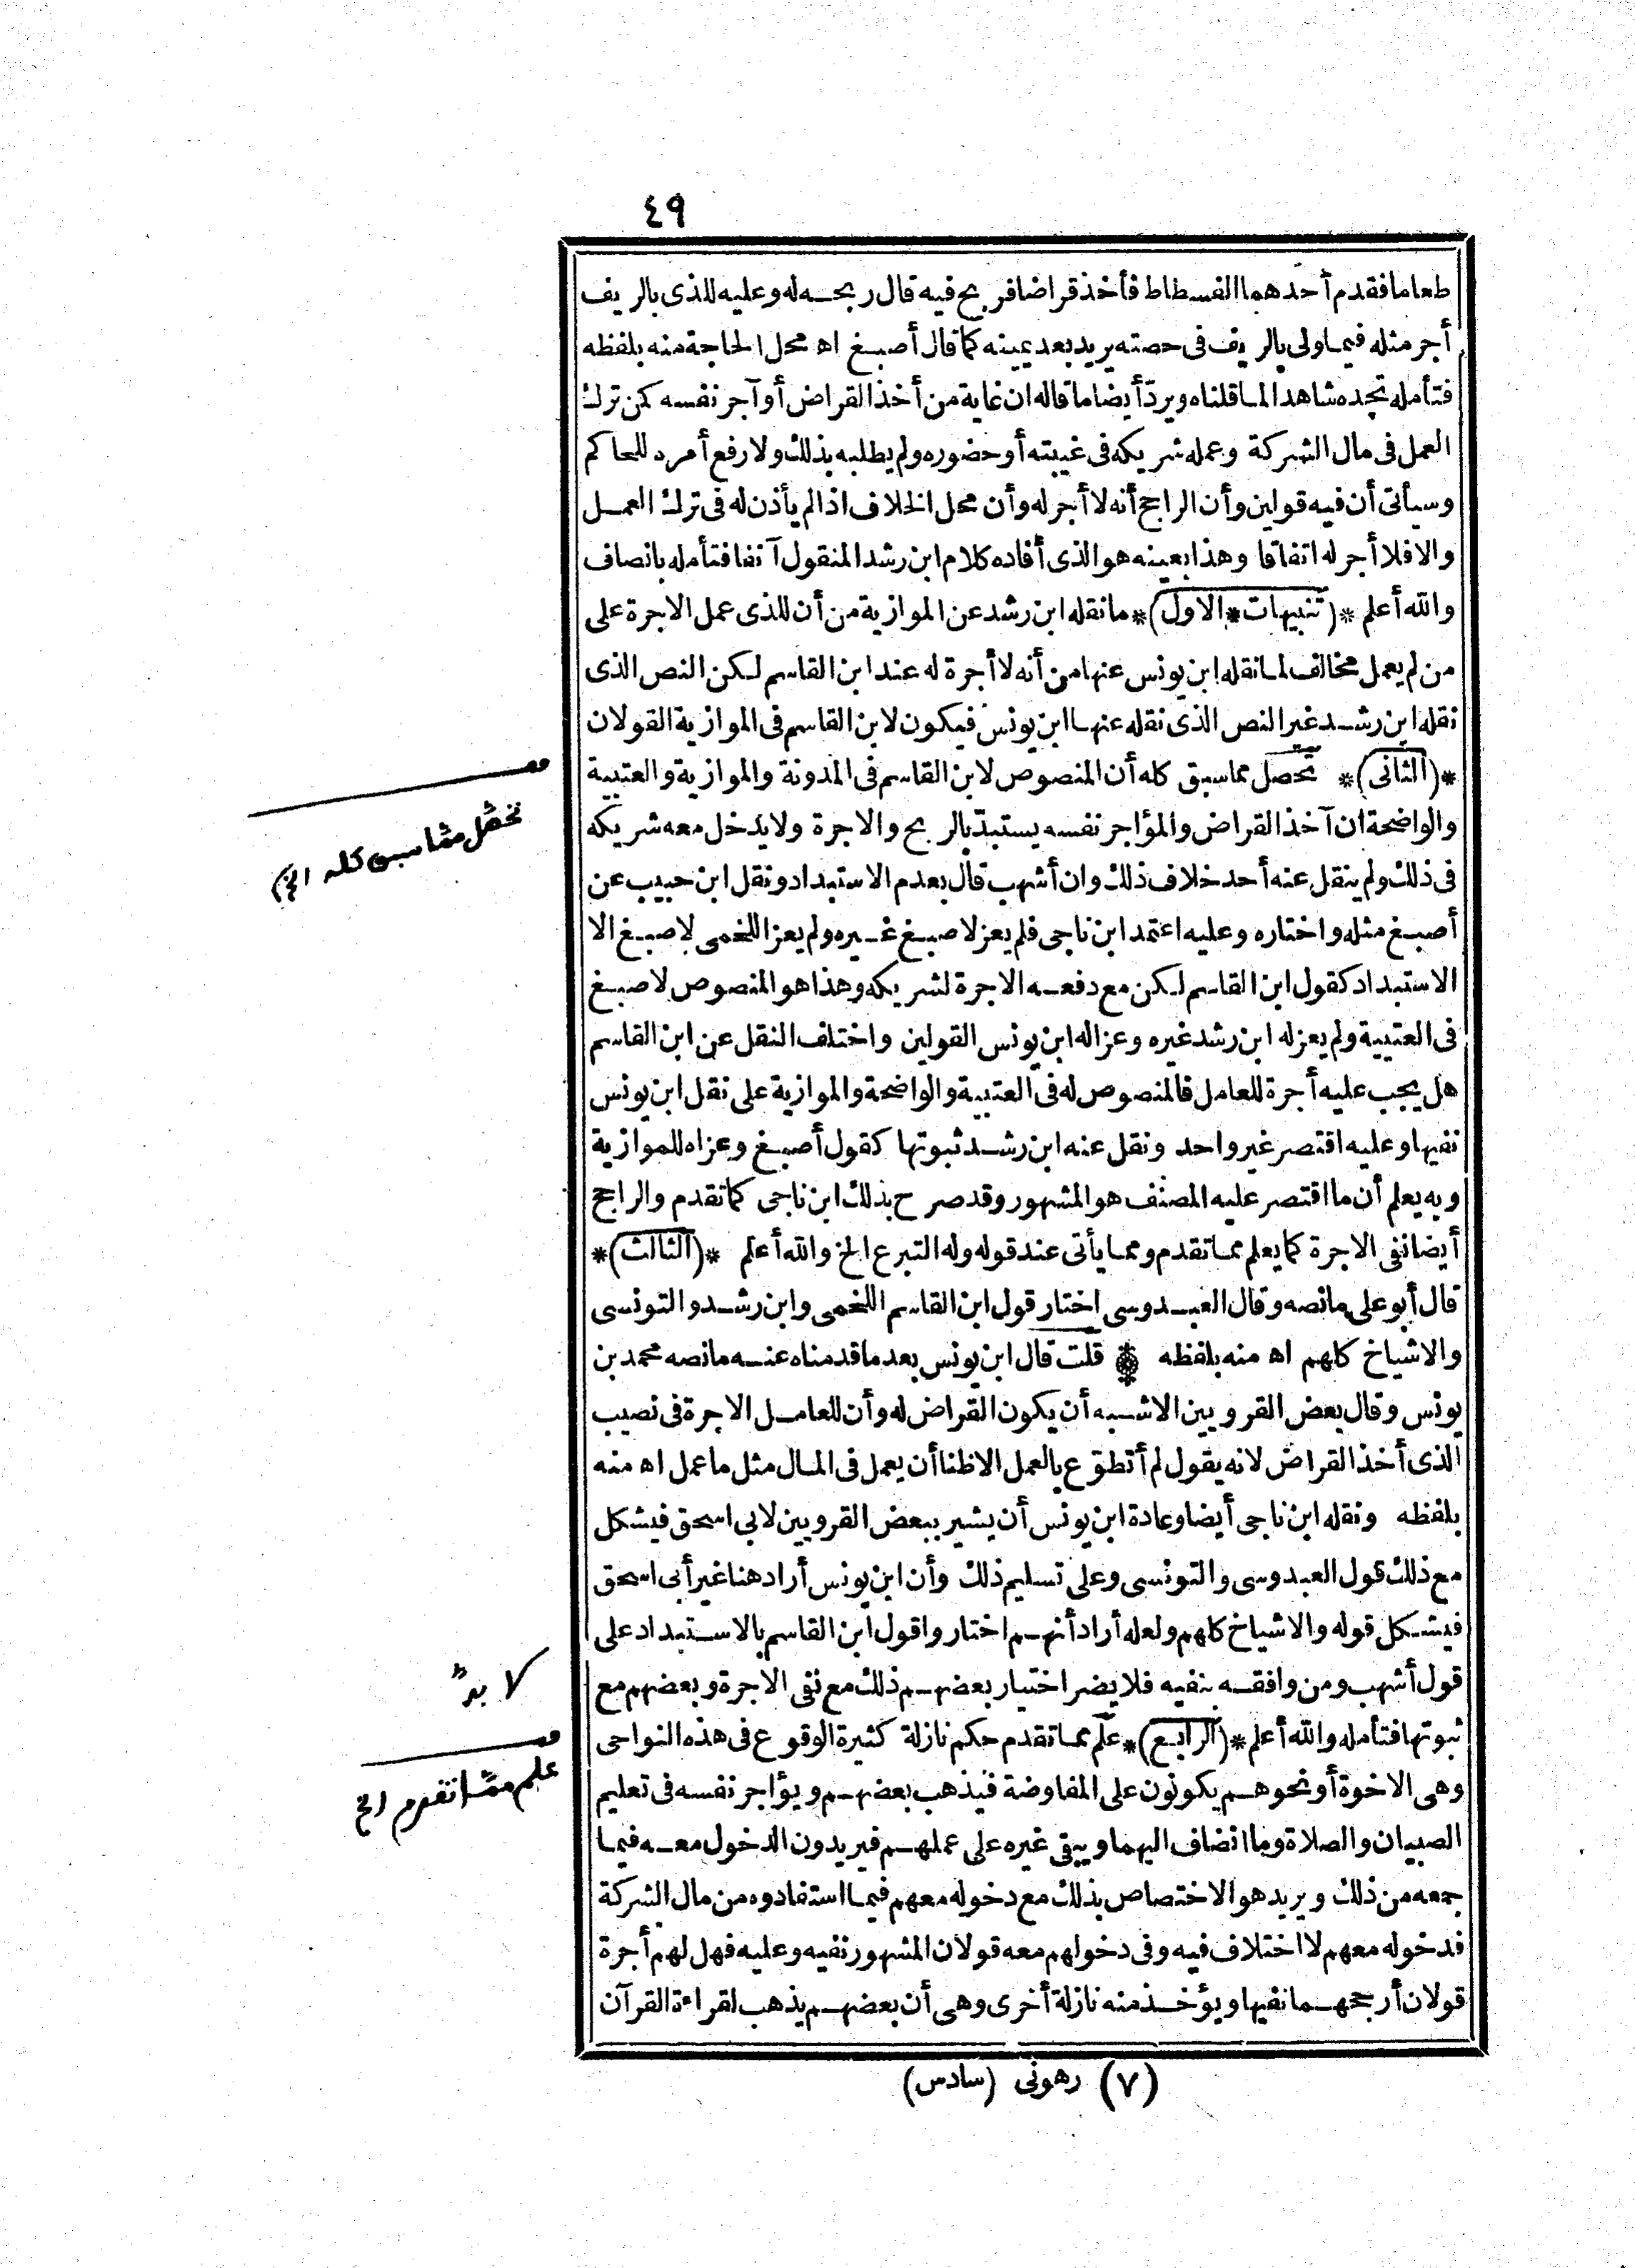 ٤٩
طعاما فقدم أحدهما الفسطاط فأخذ قراضا فربح فيه قال ربحه له وعليه للذى بالريف
أجر مثله فيما ولى بالريف فى حصته يريد بعد يمينه كما قال أصبغ اه محل الحاجة منه بلفظه
فتأمله تجده شاهدا لما قلناه ويردّ أيضا ما قاله ان غاية من أخذ القراض أو آجر نفسه كمن ترك
العمل فى مال الشركة وعمله شريكه فى غيبته أو حضوره ولم يطلبه بذلك ولا رفع أمره للحاكم
وسيأتى أن فيه قولين وأن الراجح أنه لا أجر له وأن محل الخلاف اذا لم يأذن له فى ترك العمل
والا فلا أجر له اتفاقا وهذا بعينه هو الذى أفاده كلام ابن رشد المنقول آنفا فتأمله بانصاف
والله أعلم *(تنبيهات * الاول)* ما نقله ابن رشد عن الموازية من أن للذى عمل الاجرة على
من لم يعمل مخالف لما نقله ابن يونس عنها من أنه لا أجرة له عند ابن القاسم لكن النص الذى
نقله ابن رشد غير النص الذى نقله عنها ابن يونس فيكون لابن القاسم فى الموازية القولان
*(الثانى)* تحصل مما سبق كله أن المنصوص لابن القاسم فى المدونة والموازية والعتبية
والواضحة ان آخذ القراض والمؤاجر نفسه يستبدّ بالربح والاجرة ولا يدخل معه شريكه
فى ذلك ولم ينقل عنه أحد خلاف ذلك وان أشهب قال بعدم الاستبداد ونقل ابن حبيب عن
أصبغ مثله واختاره وعليه اعتمد ابن ناجى فلم يعز لاصبغ غيره ولم يعز اللخمى لاصبغ الا
الاستبداد كقول ابن القاسم لكن مع دفعه الاجرة لشريكه وهذا هو المنصوص لاصبغ
فى العتبية ولم يعزله ابن رشد غيره وعزاله ابن يونس القولين واختلف النقل عن ابن القاسم
هل يجب عليه أجرة للعامل فالمنصوص له فى العتبية والواضحة والموازية على نقل ابن يونس
نفيها وعليه اقتصر غير واحد ونقل عنه ابن رشد ثبوتها كقول أصبغ وعزاه للموازية
وبه يعلم أن ما اقتصر عليه المصنف هو المشهور وقد صرح بذلك ابن ناجى كما تقدم والراجح
أيضا نفى الاجرة كما يعلم مما تقدم ومما يأتى عند قوله وله التبرع الخ والله أعلم *(الثالث)*
قال أبو على ما نصه وقال العبدوسى اختار قول ابن القاسم اللخمى وابن رشد والتونسى
والاشياخ كلهم اه منه بلفظه * قلت قال ابن يونس بعد ما قدمناه عنه ما نصه محمد بن
يونس وقال بعض القرويين الاشبه أن يكون القراض له وأن للعامل الاجرة فى نصيب
الذى أخذ القراض لانه يقول لم أتطوّع بالعمل الا ظنا أن يعمل فى المال مثل ما عمل اه منه
بلفظه ونقله ابن ناجى أيضا وعادة ابن يونس أن يشير ببعض القرويين لابى اسحق فيشكل
مع ذلك قول العبدوسى والتونسى وعلى تسليم ذلك وأن ابن يونس أراد هنا غير أبى اسحق
فيشكل قوله والاشياخ كلهم ولعله أراد أنهم اختاروا قول ابن القاسم بالاستبداد على
قول أشهب ومن وافقه بنفيه فلا يضر اختيار بعضهم ذلك مع نفى الاجرة وبعضهم مع
ثبوتها فتأمله والله أعلم *(الرابع)* علم مما تقدم حكم نازلة كثيرة الوقوع فى هذه النواحى
وهى الاخوة أو نحوهم يكونون على المفاوضة فيذهب بعضهم ويؤاجر نفسه فى تعليم
الصبيان والصلاة وما انضاف اليهما ويبقى غيره على عملهم فيريدون الدخول معه فيما
جمعه من ذلك ويريد هو الاختصاص بذلك مع دخوله معهم فيما استفادوه من مال الشركة
فدخوله معهم لا اختلاف فيه وفى دخولهم معه قولان المشهور نفيه وعليه فهل لهم أجرة
قولان أرجحهما نفيها ويؤخذ منه نازلة أخرى وهى أن بعضهم يذهب لقراءة القرآن
(٧) رهونى (سادس)
تحصّل ممّا سبق كله الخ
علم ممّا تقدم الخ